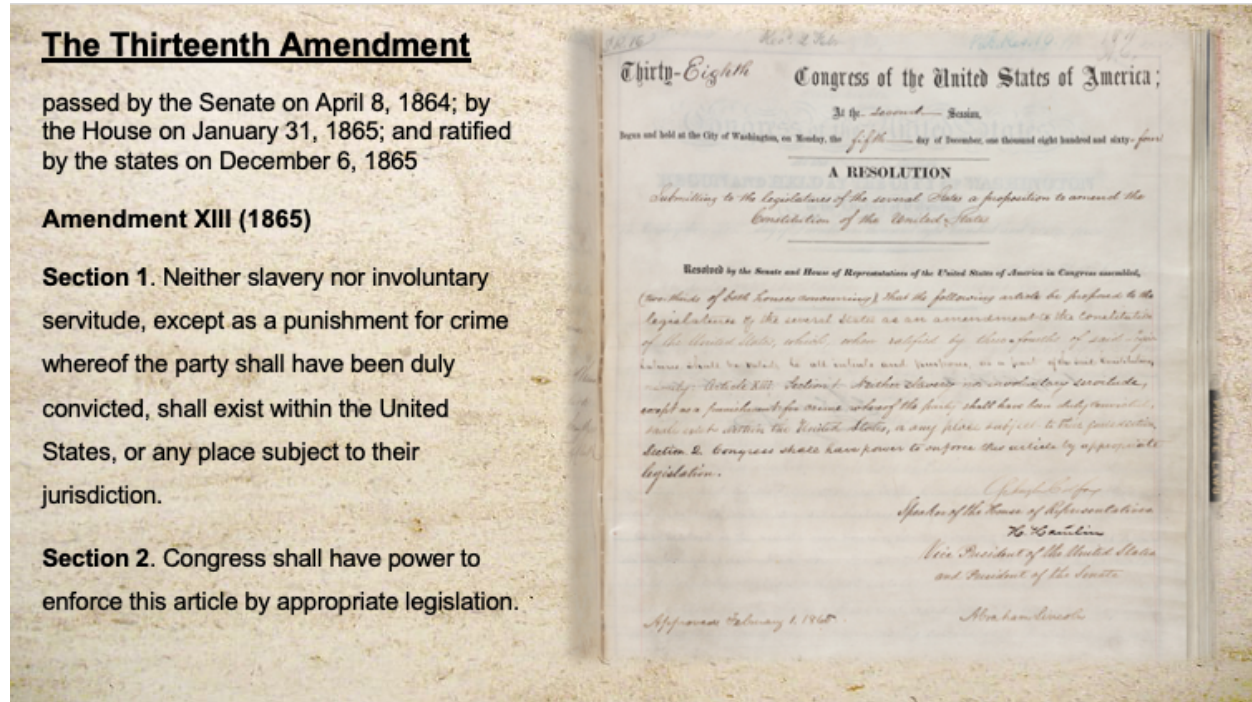 The Thirteenth Amendment
passed by the Senate on April 8, 1864; by
the House on January 31, 1865; and ratified
by the states on December 6, 1865
Amendment XIII (1865)
Section 1. Neither slavery nor involuntary
servitude, except as a punishment for crime
whereof the party shall have been duly
convicted, shall exist within the United
States, or any place subject to their
jurisdiction.
Section 2. Congress shall have power to
enforce this article by appropriate legislation.
Thirty-Eighth Congress of the United States of America;
At the second Session,
Begun and held at the City of Washington, on Monday, the fifth day of December, one thousand eight hundred and sixty-four
A RESOLUTION
Submitting to the legislatures of the several States a proposition to amend the
Constitution of the United States
Resolved by the Senate and House of Representatives of the United States of America in Congress assembled,
(two-thirds of both houses concurring), that the following article be proposed to the
legislatures of the several States as an amendment to the constitution
of the United States, which, when ratified by three-fourths of said
Article XIII. Section 1. Neither slavery nor involuntary servitude,
except as a punishment for crime whereof the party shall have been duly convicted,
shall exist within the United States, or any place subject to their jurisdiction.
Section 2. Congress shall have power to enforce this article by appropriate
legislation.
Speaker of the House of Representatives
H. Hamlin
Vice President of the United States
and President of the Senate
Approved February 1, 1865 Abraham Lincoln